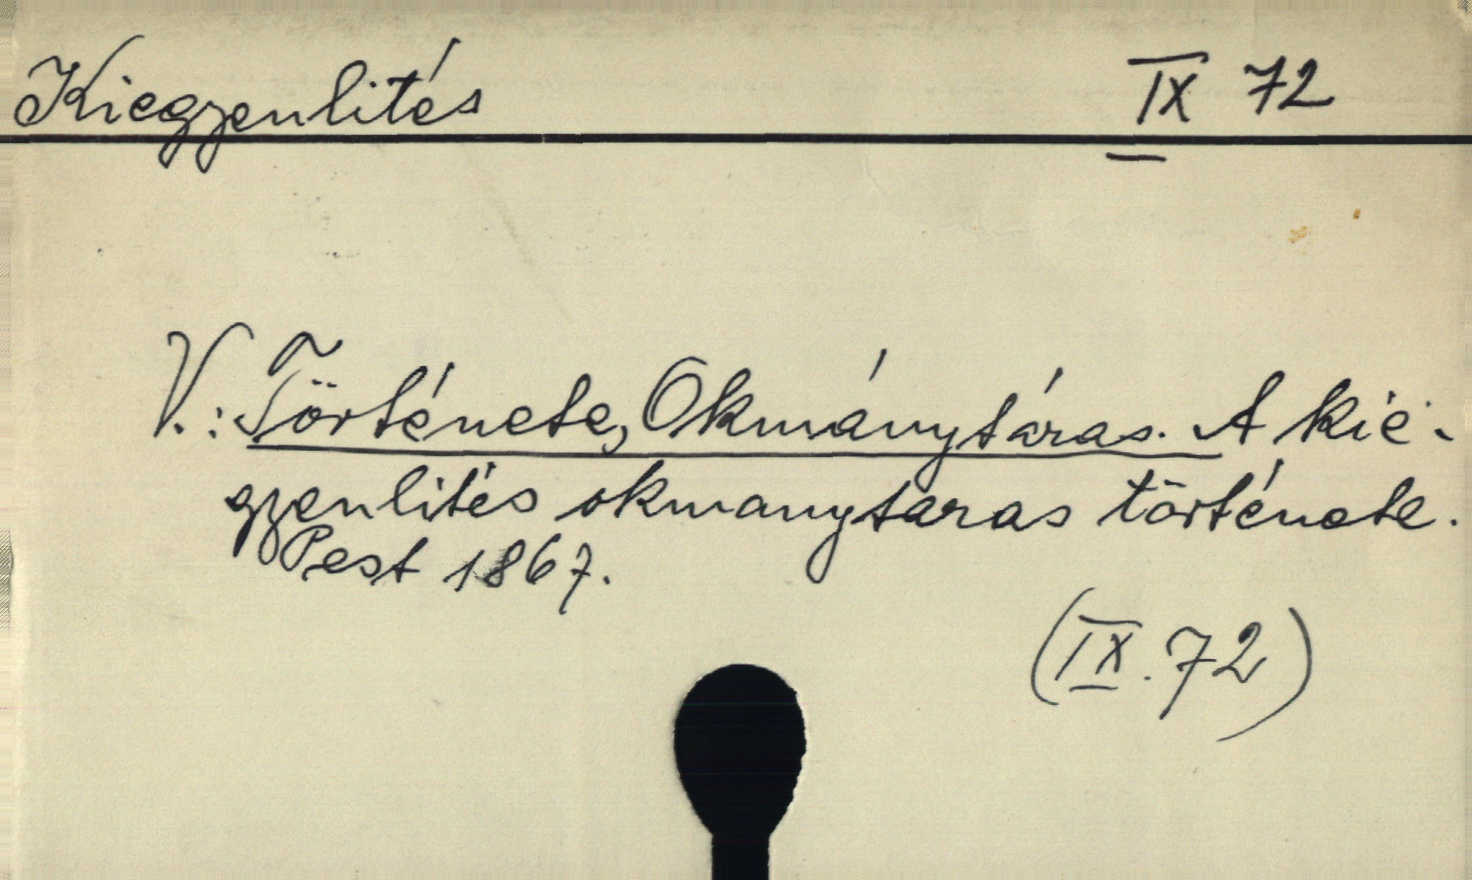 Kiegyenlités IX 72
V.: Története, Okmánytáras. A kie-
gyenlités okmanytaras története.
Pest 1867.
(IX. 72)